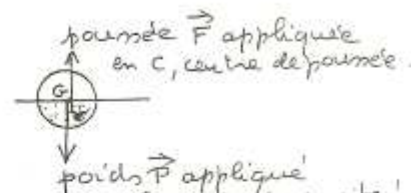 poussée F appliquée
en C, centre de poussée.
G
C
poids P appliqué